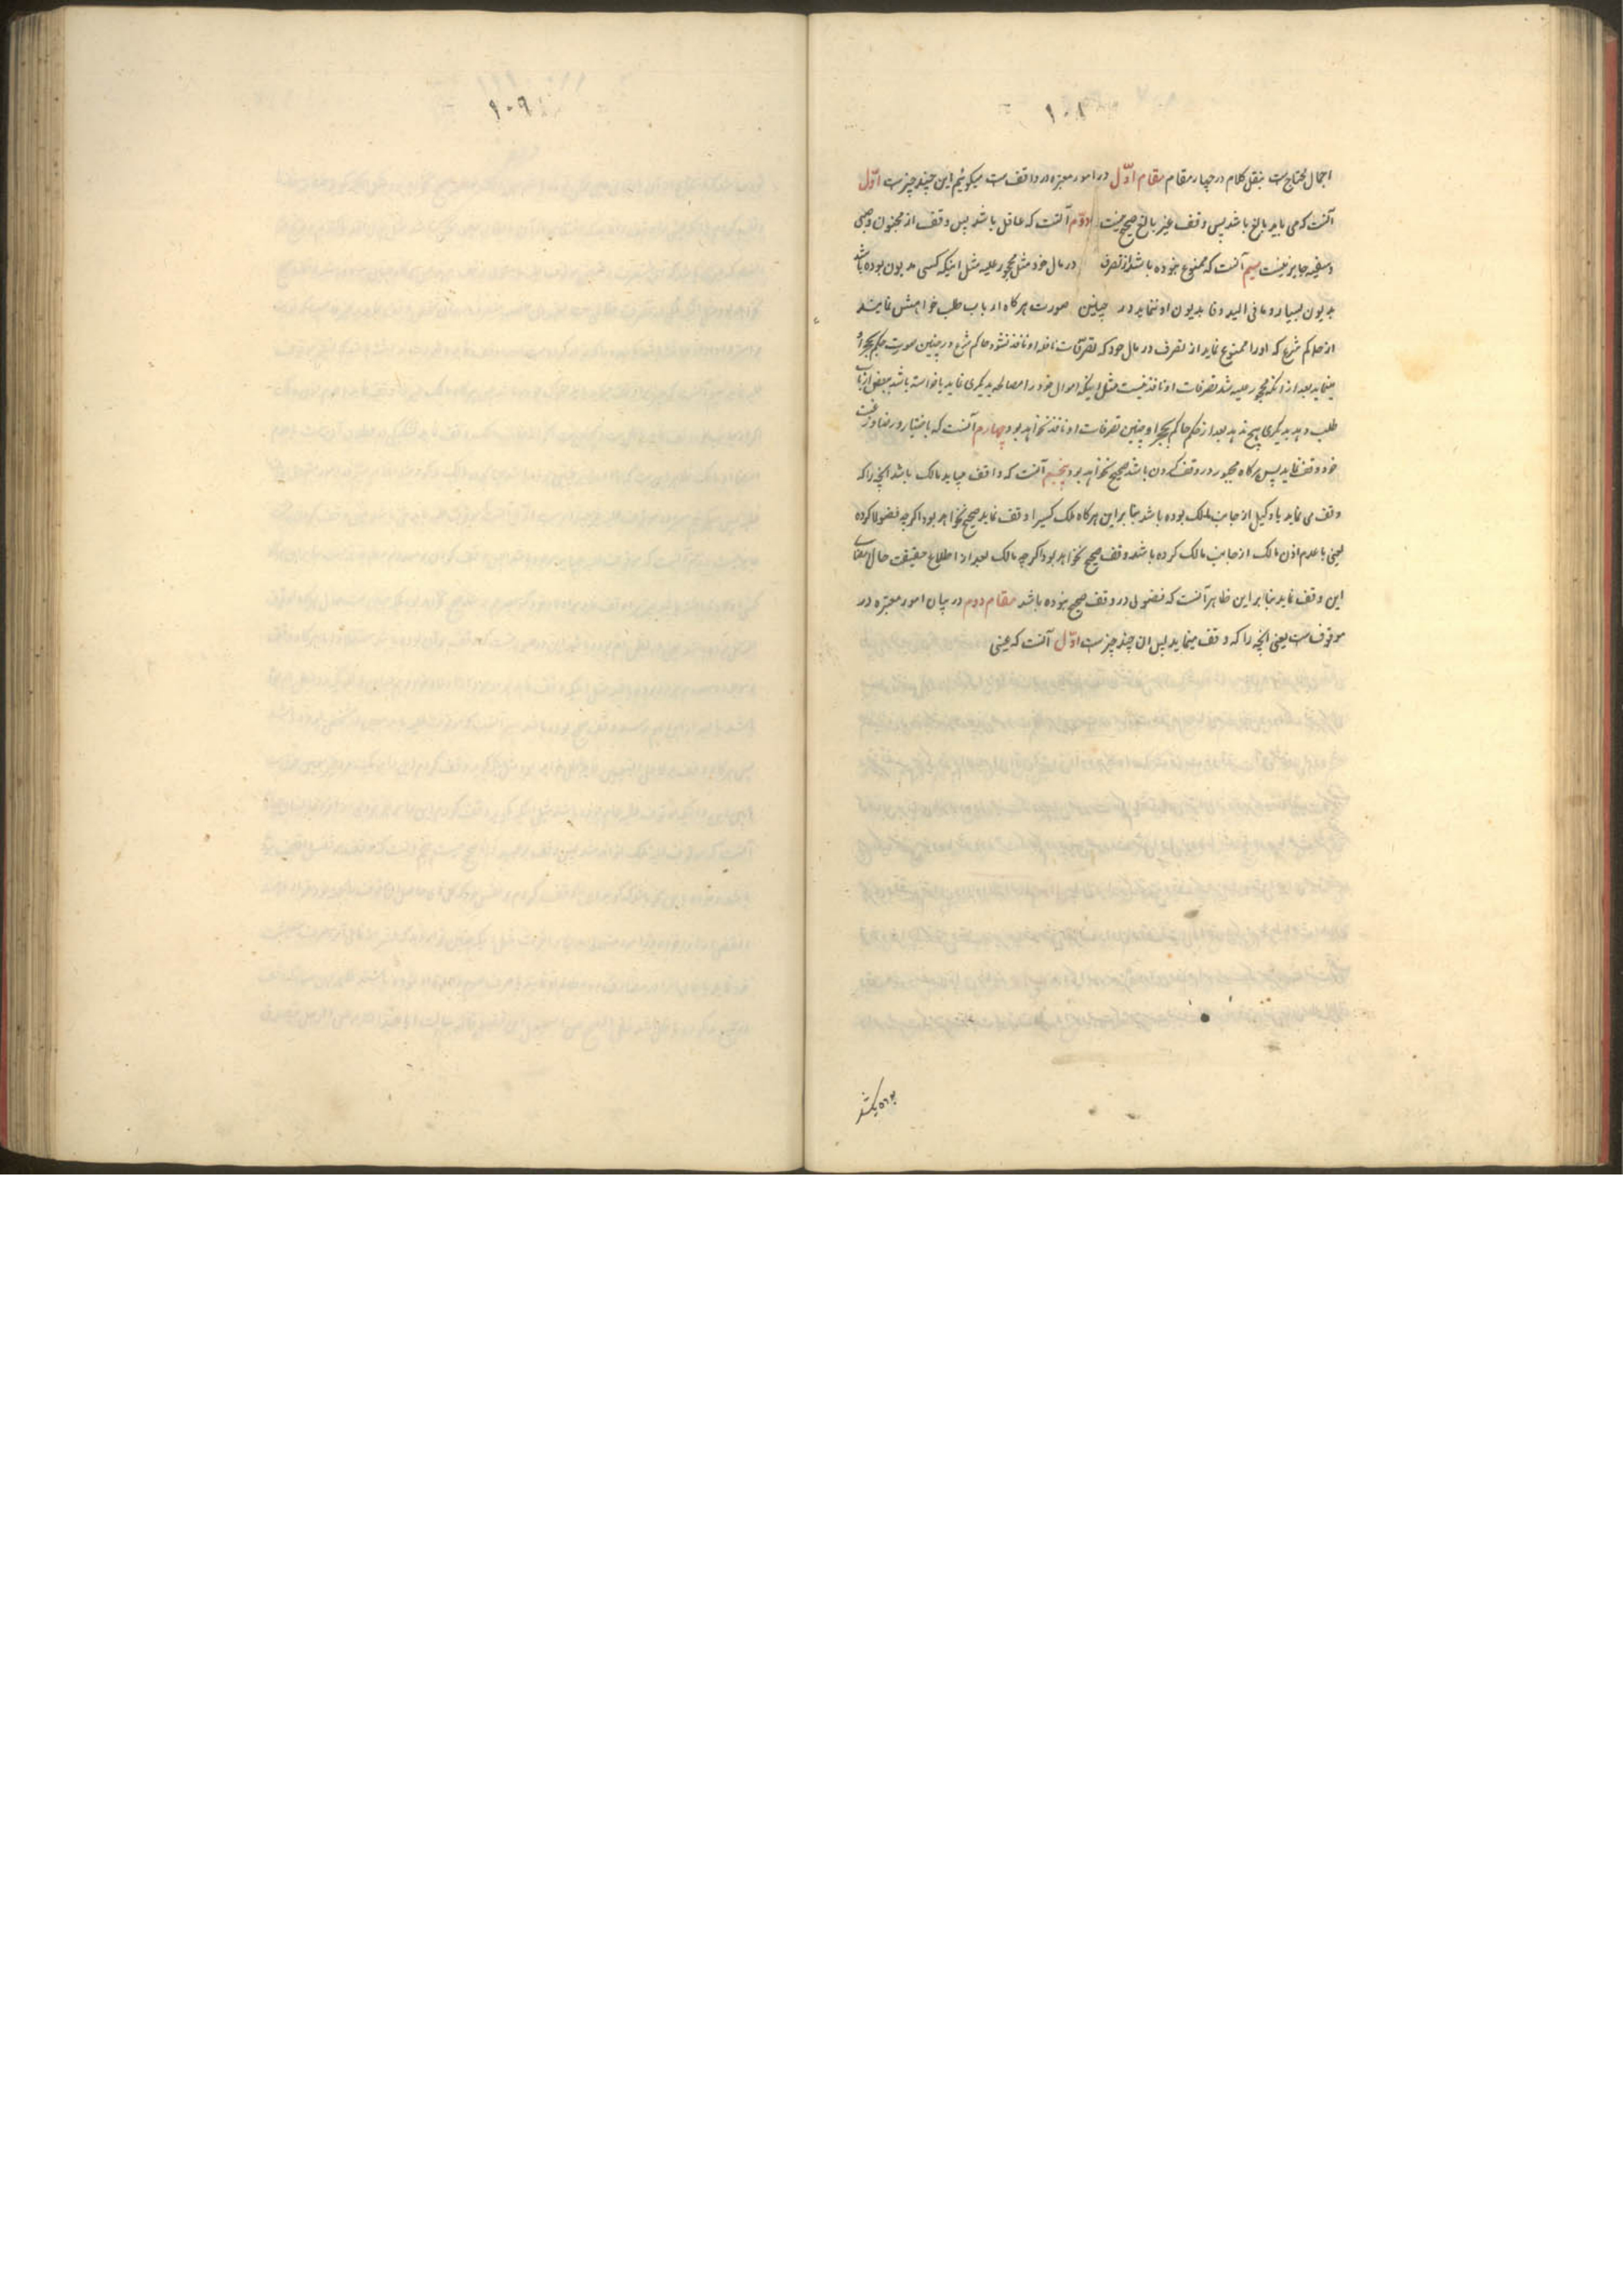 ۱۰۸
اجمال محتاج است بنقل کلام در چهار مقام مقام اوّل در امور معتبره در واقف است میکوئیم این چند چیز است اوّل
آنست که می باید بالغ باشد پس وقف غیر بالغ صحیح نیست دوّم آنست که عاقل باشد پس وقف از مجنون و صبی
و سفیه جایز نیست سیم آنست که ممنوع نبوده باشد از تصرف در مال خود مثل محجور علیه مثل اینکه کسی مدیون بوده باشد
بدیون بسیار و ما فی الید وفا بدیون او ننماید در چنین صورت هرکاه ارباب طلب خواهش نمایند
از حاکم شرع که او را ممنوع نماید از تصرف در مال خود که تصرّفات او نافذ نشود حاکم شرع در چنین صورت حکم بحجر او
مینماید بعد از آنکه محجور علیه شد تصرفات او نافذ نیست مثل اینکه اموال خود را مصالحه بدیکری نماید یا خواسته باشد ببعض ارباب
طلب دهد بدیکری هیچ ندهد بعد از حکم حاکم بحجر او چنین تصرفات او نافذ نخواهد بود چهارم آنست که باختیار و رضا و رغبت
خود وقف نماید پس هرکاه مجبور در وقف کردن باشد صحیح نخواهد بود پنجم آنست که واقف میباید مالک باشد آنچه را که
وقف می نماید یا وکیل از جانب مالک بوده باشد بنا بر این هرکاه ملک کسیرا وقف نماید صحیح نخواهد بود اکرچه فضولا کرده
یعنی با عدم اذن مالک از جانب مالک کرده باشد وقف صحیح نخواهد بود اکرچه مالک بعد از اطلاع حقیقت حال امضای
این وقف نماید بنا بر این ظاهر آنست که فضولی در وقف صحیح نبوده باشد مقام دوم در بیان امور معتبره در
موقوف است یعنی آنچه را که وقف مینماید پس ان چند چیز است اوّل آنست که عینی
بوده باشد
۱۰۹